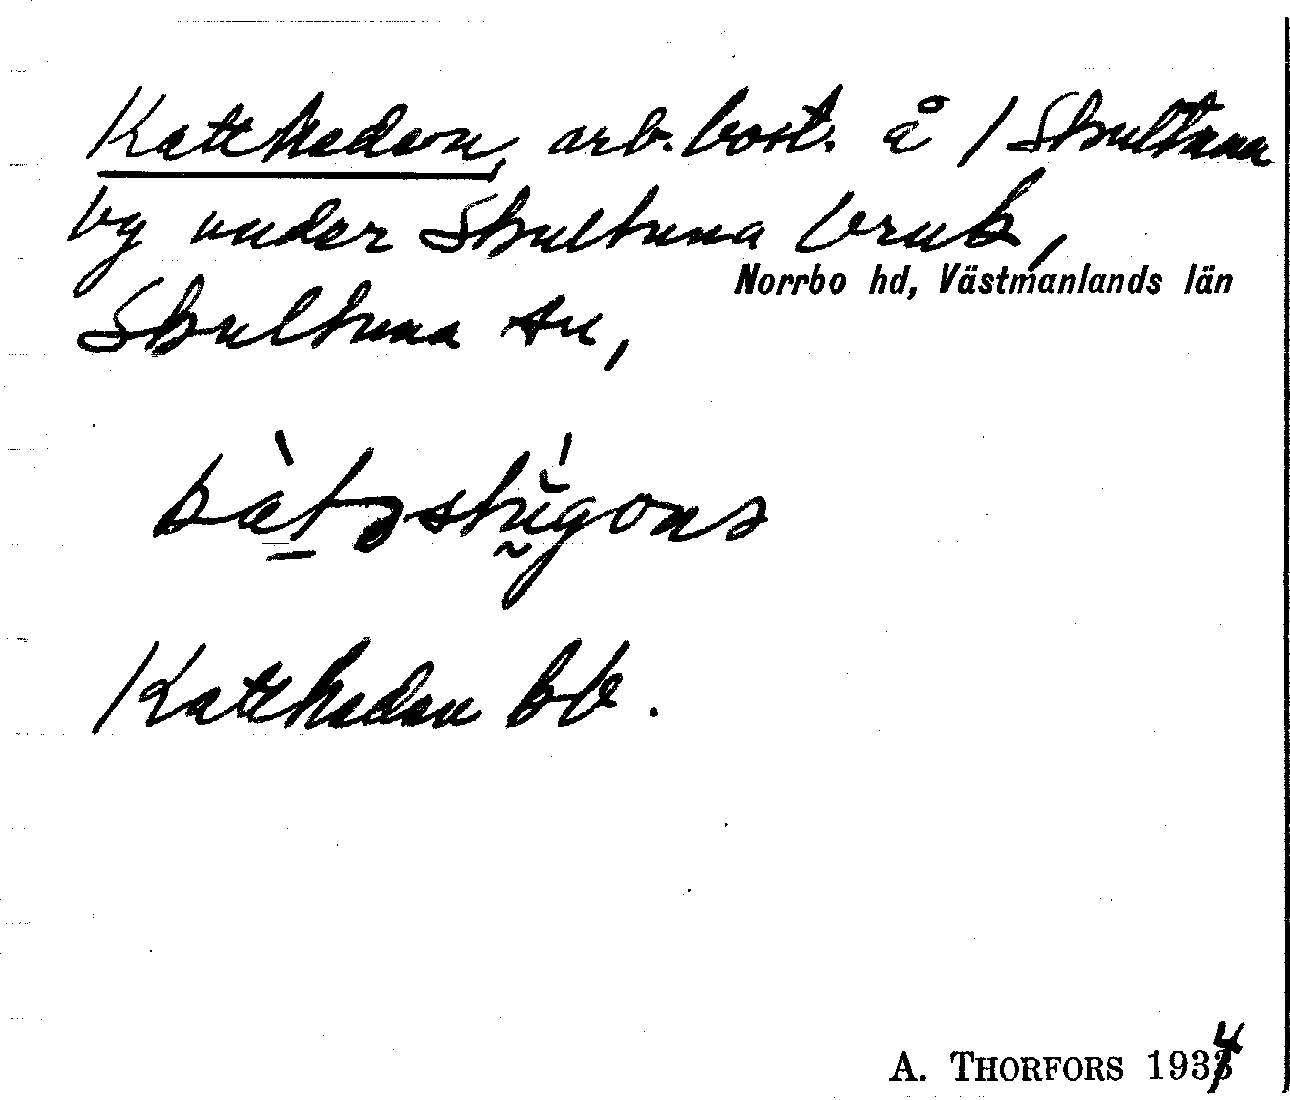 Kattkedan, arb. bost. å 1 Skultuna
by under Skultuna bruk,
Norrbo hd, Västmanlands län
Skultuna sn,
Kattkedan bb.
A. THORFORS 1934